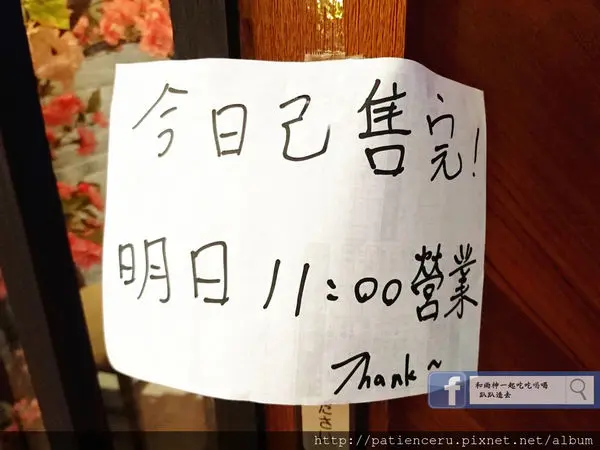 今日己售完!
明日 11:00營業
Thank~
ださい
和雨神一起吃吃喝喝
趴趴造去
http://patienceru.pixnet.net/album